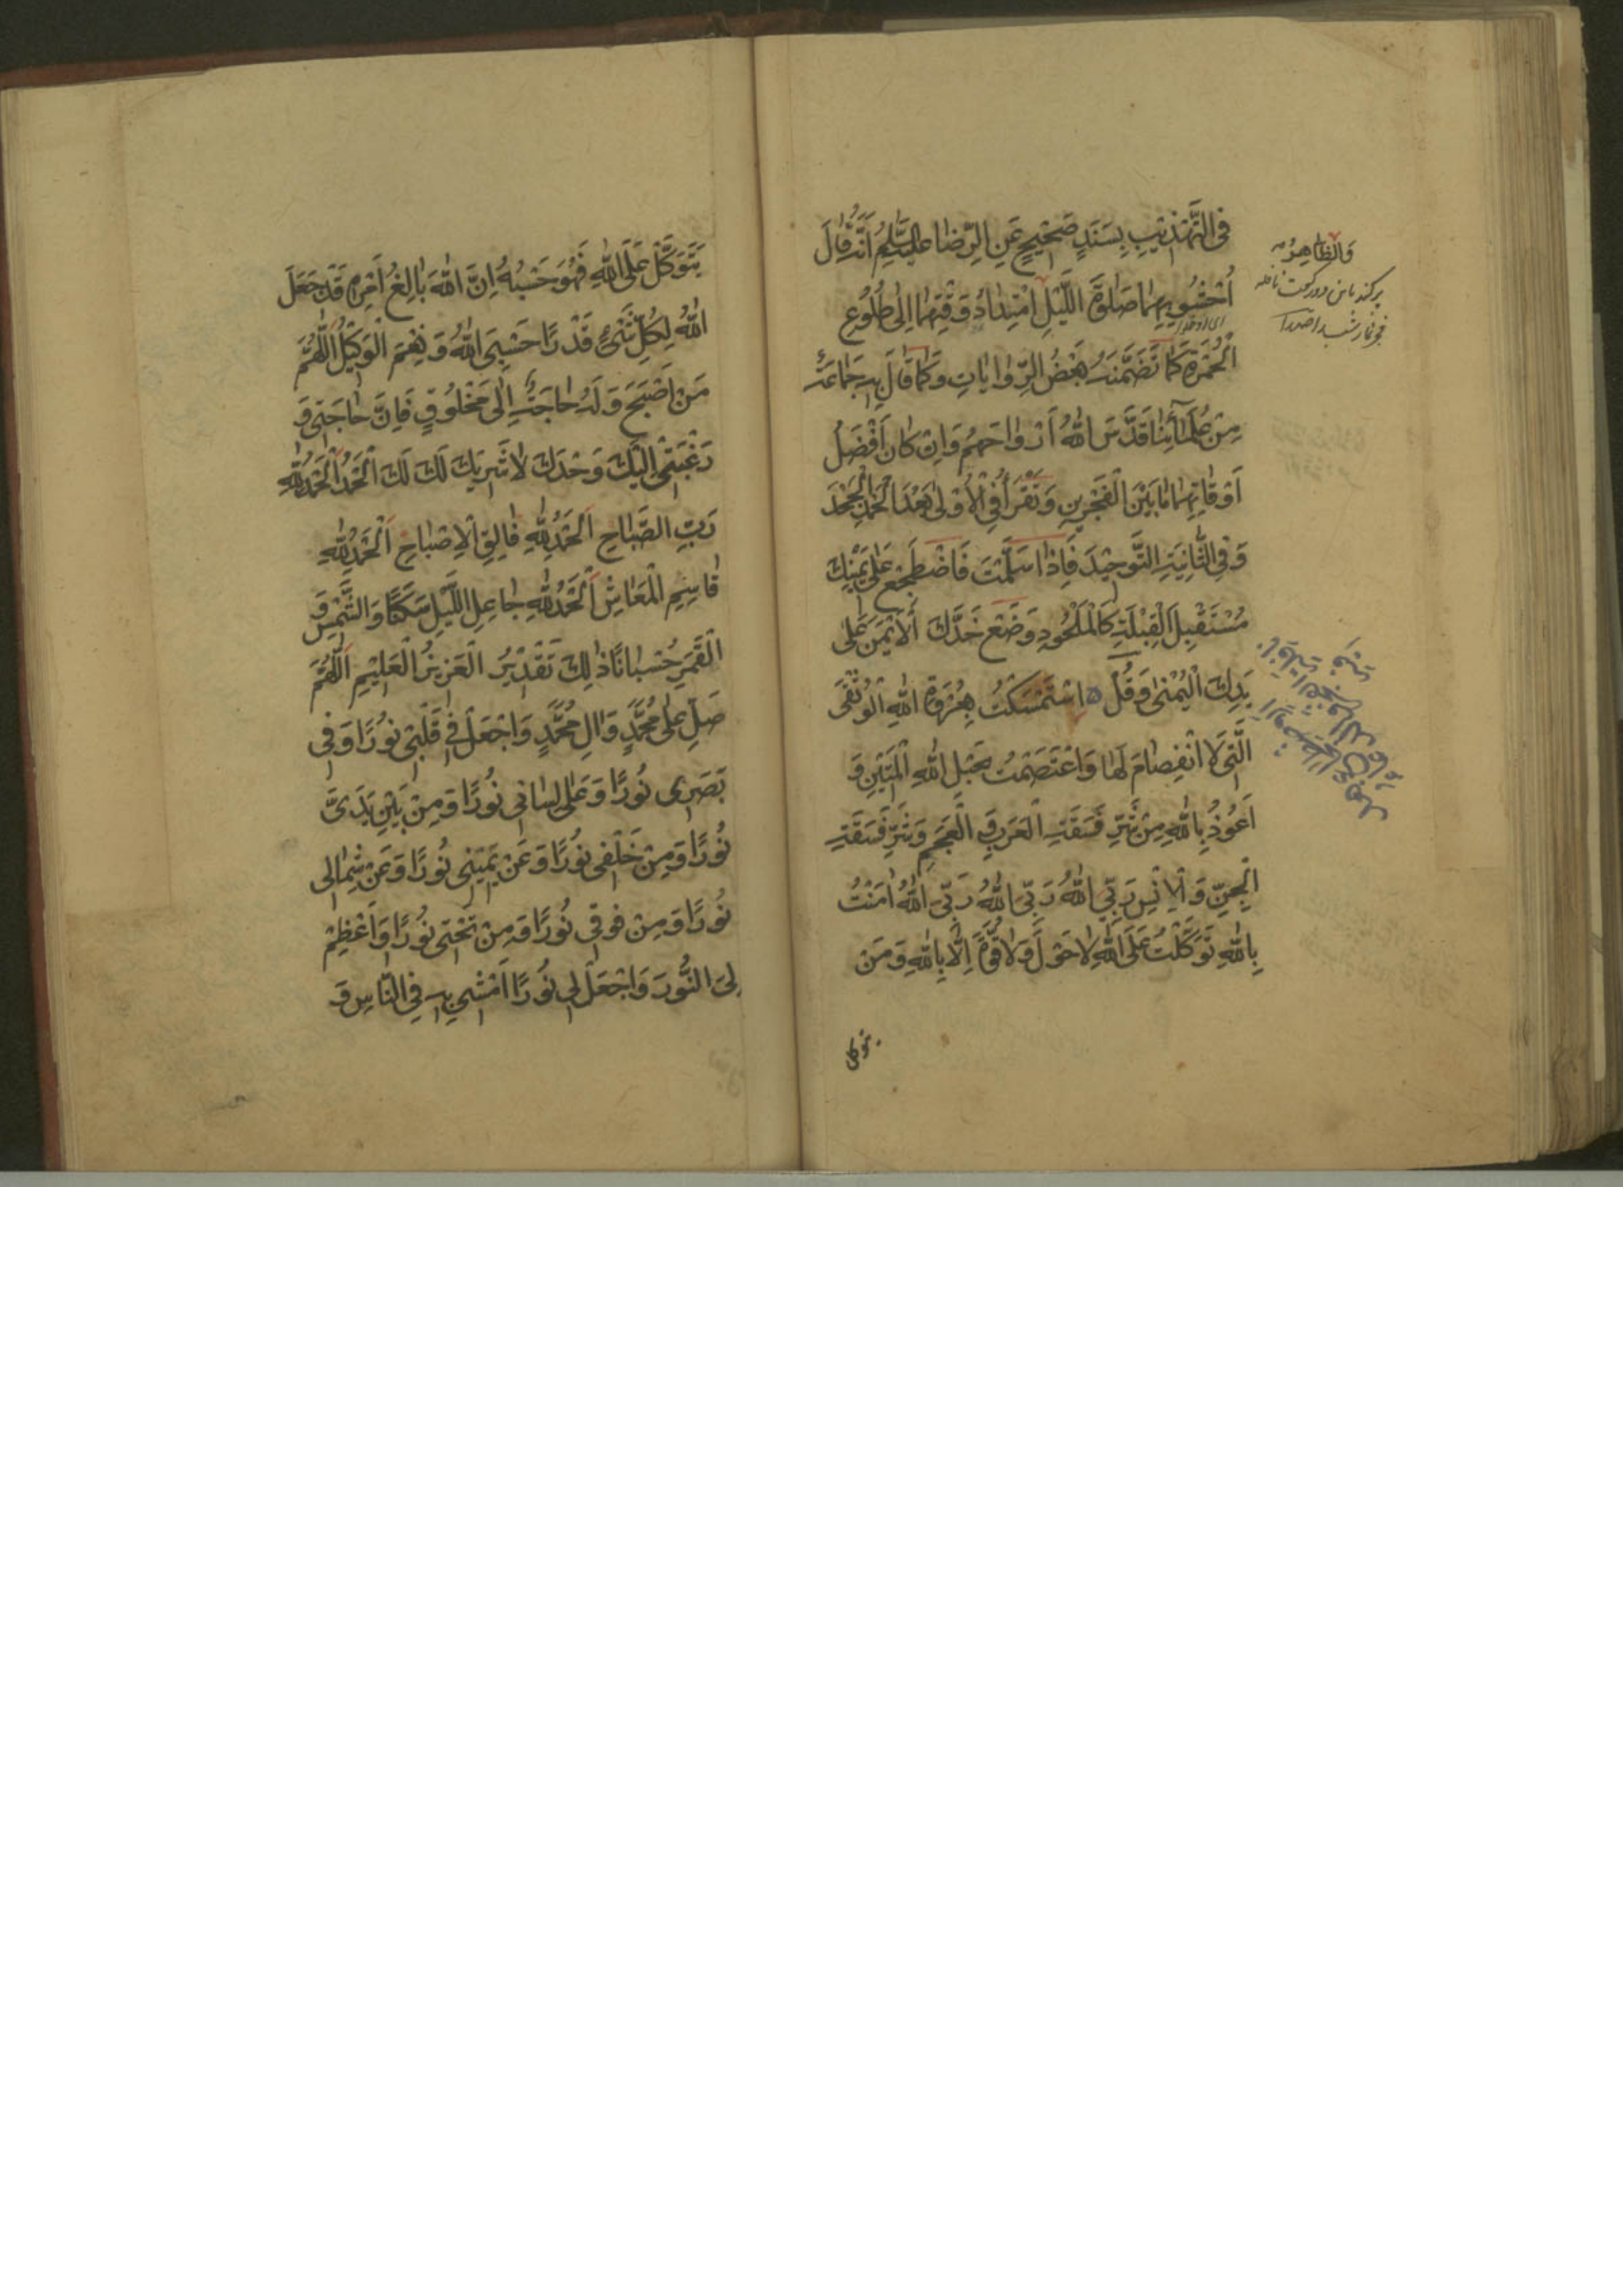 فِي التَّهْذِيبِ بِسَنَدٍ صَحِيحٍ عَنِ الرِّضَا عَلَيْهِ السَّلَامُ أَنَّهُ قَالَ
اُحْشُو بِهِمَا صَلٰوةَ اللَّيْلِ امْتِدَادُ وَقْتِهِمَا إِلٰى طُلُوعِ
الْحُمْرَةِ كَمَا تَضَمَّنَهُ بَعْضُ الرِّوَايَاتِ وَكَمَا قَالَ بِهِ جَمَاعَةٌ
مِنْ عُلَمَائِنَا قَدَّسَ اللّٰهُ أَرْوَاحَهُمْ وَإِنْ كَانَ أَفْضَلُ
أَوْقَاتِهِمَا مَا بَيْنَ الْفَجْرَيْنِ وَتَقْرَأُ فِي الْأُوْلٰى بَعْدَ الْحَمْدِ الْجَحْدَ
وَفِي الثَّانِيَةِ التَّوْحِيدَ فَإِذَا سَلَّمْتَ فَاضْطَجِعْ عَلٰى يَمِينِكَ
مُسْتَقْبِلَ الْقِبْلَةِ كَالْمَلْحُودِ وَضَعْ خَدَّكَ الْأَيْمَنَ عَلٰى
يَدِكَ الْيُمْنٰى وَقُلْ اسْتَمْسَكْتُ بِعُرْوَةِ اللّٰهِ الْوُثْقٰى
الَّتِي لَا انْفِصَامَ لَهَا وَاعْتَصَمْتُ بِحَبْلِ اللّٰهِ الْمَتِينِ وَ
أَعُوذُ بِاللّٰهِ مِنْ شَرِّ فَسَقَةِ الْعَرَبِ وَالْعَجَمِ وَشَرِّ فَسَقَةِ
الْجِنِّ وَالْإِنْسِ رَبِّيَ اللّٰهُ رَبِّيَ اللّٰهُ رَبِّيَ اللّٰهُ اٰمَنْتُ
بِاللّٰهِ تَوَكَّلْتُ عَلَى اللّٰهِ لَا حَوْلَ وَلَا قُوَّةَ إِلَّا بِاللّٰهِ وَمَنْ
يتوكل
والظاهر
يَتَوَكَّلْ عَلَى اللّٰهِ فَهُوَ حَسْبُهُ اِنَّ اللّٰهَ بَالِغُ اَمْرِهِ قَدْ جَعَلَ
اللّٰهُ لِكُلِّ شَيْءٍ قَدْرًا حَسْبِيَ اللّٰهُ وَنِعْمَ الْوَكِيلُ اَللّٰهُمَّ
مَنْ اَصْبَحَ وَلَهُ حَاجَةٌ اِلٰى مَخْلُوقٍ فَاِنَّ حَاجَتِي وَ
رَغْبَتِي اِلَيْكَ وَحْدَكَ لَا شَرِيكَ لَكَ لَكَ الْحَمْدُ اَلْحَمْدُ لِلّٰهِ
رَبِّ الصَّبَاحِ اَلْحَمْدُ لِلّٰهِ فَالِقِ الْاِصْبَاحِ اَلْحَمْدُ لِلّٰهِ
قَاسِمِ الْمَعَاشِ اَلْحَمْدُ لِلّٰهِ جَاعِلِ اللَّيْلِ سَكَنًا وَالشَّمْسِ وَ
الْقَمَرِ حُسْبَانًا ذٰلِكَ تَقْدِيرُ الْعَزِيزِ الْعَلِيمِ اَللّٰهُمَّ
صَلِّ عَلٰى مُحَمَّدٍ وَاٰلِ مُحَمَّدٍ وَاجْعَلْ فِي قَلْبِي نُورًا وَفِي
بَصَرِي نُورًا وَعَلٰى لِسَانِي نُورًا وَمِنْ بَيْنِ يَدَيَّ
نُورًا وَمِنْ خَلْفِي نُورًا وَعَنْ يَمِينِي نُورًا وَعَنْ شِمَالِي
نُورًا وَمِنْ فَوْقِي نُورًا وَمِنْ تَحْتِي نُورًا وَاَعْظِمْ
لِيَ النُّورَ وَاجْعَلْ لِي نُورًا اَمْشِي بِهِ فِي النَّاسِ وَ